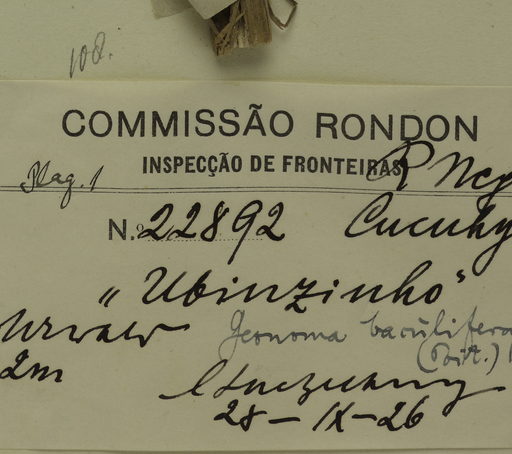 108.
COMMISSÃO RONDON
INSPECÇÃO DE FRONTEIRAS
Plag. 1 R Neg
N.º 22892 Cucuhy
"Ubinzinho"
Urwald Geonoma baculifera
2m (Poit.)
28-IX-26